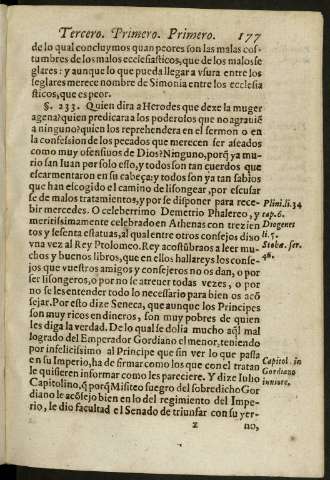 Tercero. Primero. Primero. 177
de lo qual concluymos quan peores son las malas cos-
tumbres de los malos ecclesiasticos, que de los malos se
glares: y aunque lo que pueda llegar a vsura entre los
seglares merece nombre de Simonia entre los ecclesia
sticos, que es peor.
§. 233. Quien dira a Herodes que dexe la muger
agena? quien predicara a los poderosos que no agrauiē
a ninguno? quien los reprehendera en el sermon o en
la confession de los pecados que merecen ser afeados
como muy ofensiuos de Dios? Ninguno, porq̄ ya mu-
rio san Iuan por solo esso, y todos son tan cuerdos que
escarmentaron en su cabeça: y todos son ya tan sabios
que han escogido el camino de lisongear, por escusar
se de malos tratamientos, y por se disponer para rece-
bir mercedes. O celeberrimo Demetrio Phalereo, y
meritissimamente celebrado en Athenas con trezien
tos y sesenta estatuas, al qual entre otros consejos dixo
vna vez al Rey Ptolomeo. Rey acostūbraos a leer mu-
chos y buenos libros, que en ellos hallareys los conse-
jos que vuestros amigos y consejeros no os dan, o por
ser lisongeros, o por no se atreuer todas vezes, o por
no se les entender todo lo necessario para bien os acō
sejar. Por esto dize Seneca, que aunque los Principes
son muy ricos en dineros, son muy pobres de quien
les diga la verdad. De lo qual se dolia mucho aq̄l mal
logrado del Emperador Gordiano el menor, teniendo
por infelicissimo al Principe que sin ver lo que passa
en su Imperio, ha de firmar como los que con el tratan
le quisieren informar como les pareciere. Y dize Iulio
Capitolino, q̄ porq̄ Misiteo suegro del sobredicho Gor
diano le acōsejo bien en lo del regimiento del Impe-
rio, le dio facultad el Senado de triunfar con su yer-
z no,
Plini. li. 34
cap. 6.
Diogenes
li. 5.
Stobæ. ser.
48.
Capitol. in
Gordiano
iuniore.